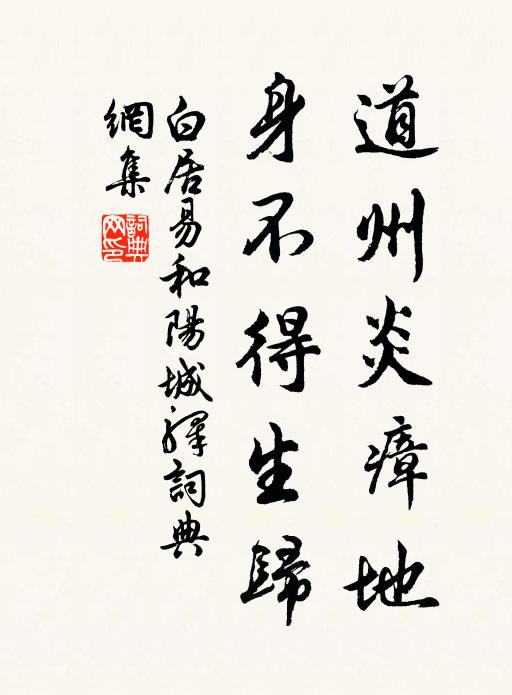 道州炎瘴地
身不得生歸
白居易和陽城驛詞典
網集
詞典
网印